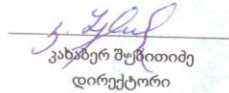 კახაბერ შუბითიძე
დირექტორი